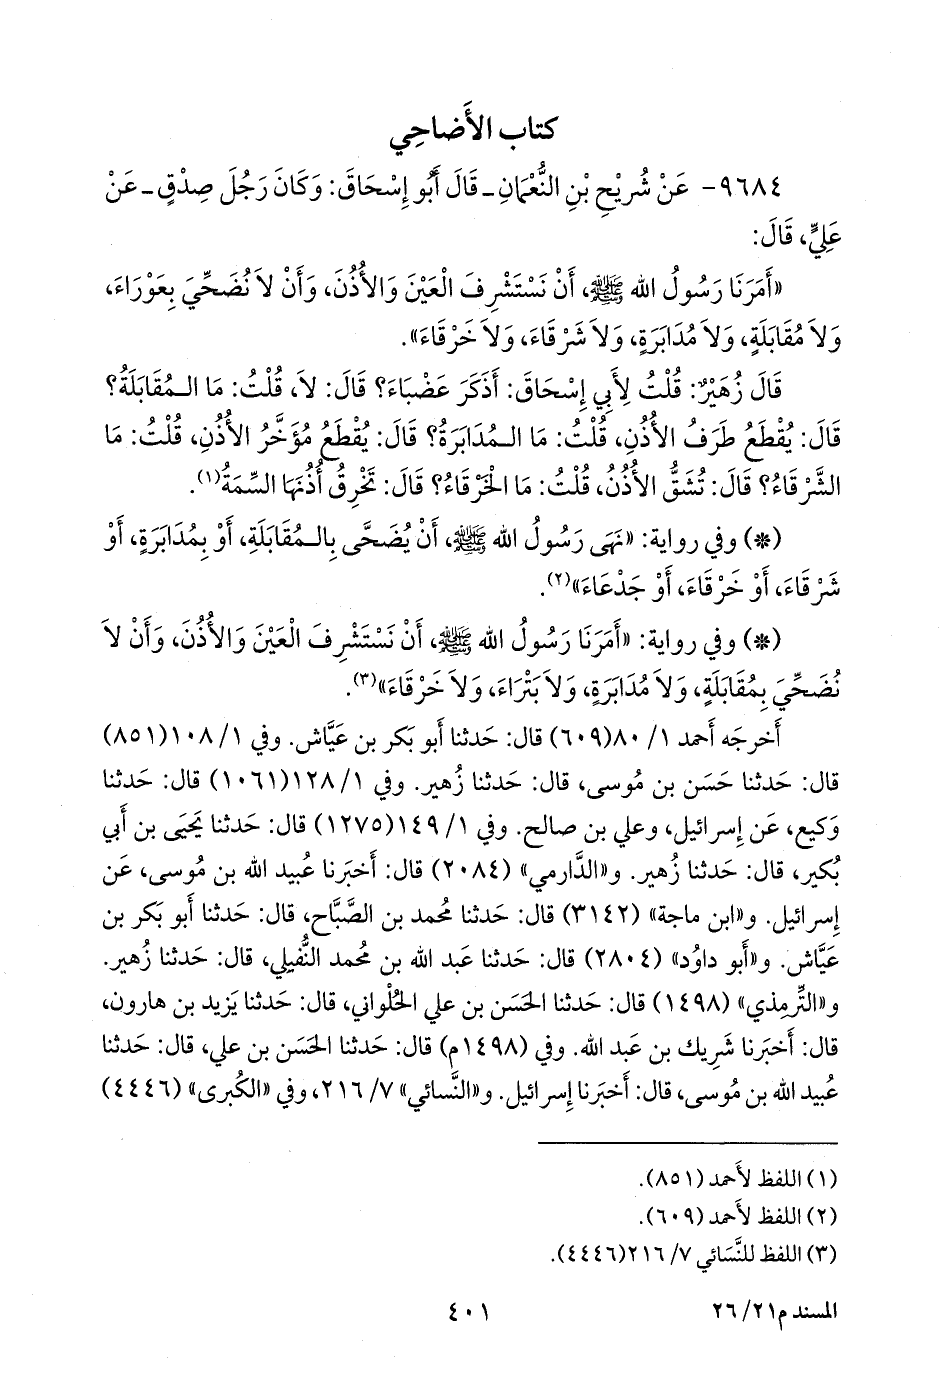 كتاب الأَضاحِي
٩٦٨٤- عَنْ شُرَيْحِ بْنِ النُّعْمَانِ - قَالَ أَبُو إِسْحَاقَ: وَكَانَ رَجُلَ صِدْقٍ - عَنْ
عَلِيٍّ، قَالَ:
«أَمَرَنَا رَسُولُ الله ﷺ، أَنْ نَسْتَشْرِفَ الْعَيْنَ وَالأُذُنَ، وَأَنْ لاَ نُضَحِّيَ بِعَوْرَاءَ،
وَلاَ مُقَابَلَةٍ، وَلاَ مُدَابَرَةٍ، وَلاَ شَرْقَاءَ، وَلاَ خَرْقَاءَ».
قَالَ زُهَيْرٌ: قُلْتُ لِأَبِي إِسْحَاقَ: أَذَكَرَ عَضْبَاءَ؟ قَالَ: لاَ، قُلْتُ: مَا الـمُقَابَلَةُ؟
قَالَ: يُقْطَعُ طَرَفُ الأُذُنِ، قُلْتُ: مَا الـمُدَابَرَةُ؟ قَالَ: يُقْطَعُ مُؤَخَّرُ الأُذُنِ، قُلْتُ: مَا
الشَّرْقَاءُ؟ قَالَ: تُشَقُّ الأُذُنُ، قُلْتُ: مَا الْخَرْقَاءُ؟ قَالَ: تَخْرِقُ أُذُنَهَا السِّمَةُ(١).
(*) وفي رواية: «نَهَى رَسُولُ الله ﷺ، أَنْ يُضَحَّى بِالـمُقَابَلَةِ، أَوْ بِمُدَابَرَةٍ، أَوْ
شَرْقَاءَ، أَوْ خَرْقَاءَ، أَوْ جَدْعَاءَ»(٢).
(*) وفي رواية: «أَمَرَنَا رَسُولُ الله ﷺ، أَنْ نَسْتَشْرِفَ الْعَيْنَ وَالأُذُنَ، وَأَنْ لاَ
نُضَحِّيَ بِمُقَابَلَةٍ، وَلاَ مُدَابَرَةٍ، وَلاَ بَتْرَاءَ، وَلاَ خَرْقَاءَ»(٣).
أَخرجَه أَحمد ١/ ٨٠(٦٠٩) قال: حَدثنا أَبو بَكر بن عَيَّاش. وفي ١/ ١٠٨(٨٥١)
قال: حَدثنا حَسَن بن مُوسى، قال: حَدثنا زُهير. وفي ١/ ١٢٨(١٠٦١) قال: حَدثنا
وَكيع، عَن إِسرائيل، وعلي بن صالح. وفي ١/ ١٤٩(١٢٧٥) قال: حَدثنا يَحيَى بن أَبي
بُكير، قال: حَدثنا زُهير. و«الدَّارمي» (٢٠٨٤) قال: أَخبَرنا عُبيد الله بن مُوسى، عَن
إِسرائيل. و«ابن ماجة» (٣١٤٢) قال: حَدثنا مُحمد بن الصَّبَّاح، قال: حَدثنا أَبو بَكر بن
عَيَّاش. و«أَبو داوُد» (٢٨٠٤) قال: حَدثنا عَبد الله بن مُحمد النُّفيلي، قال: حَدثنا زُهير.
و«التِّرمِذي» (١٤٩٨) قال: حَدثنا الحَسَن بن علي الحُلْواني، قال: حَدثنا يَزيد بن هارون،
قال: أَخبَرنا شَرِيك بن عَبد الله. وفي (١٤٩٨م) قال: حَدثنا الحَسَن بن علي، قال: حَدثنا
عُبيد الله بن مُوسى، قال: أَخبَرنا إِسرائيل. و«النَّسائي» ٧/ ٢١٦، وفي «الكُبرى» (٤٤٤٦)
(١) اللفظ لأَحمد (٨٥١).
(٢) اللفظ لأَحمد (٦٠٩).
(٣) اللفظ للنَّسَائي ٧/ ٢١٦(٤٤٤٦).
المسند م٢١/ ٢٦
٤٠١